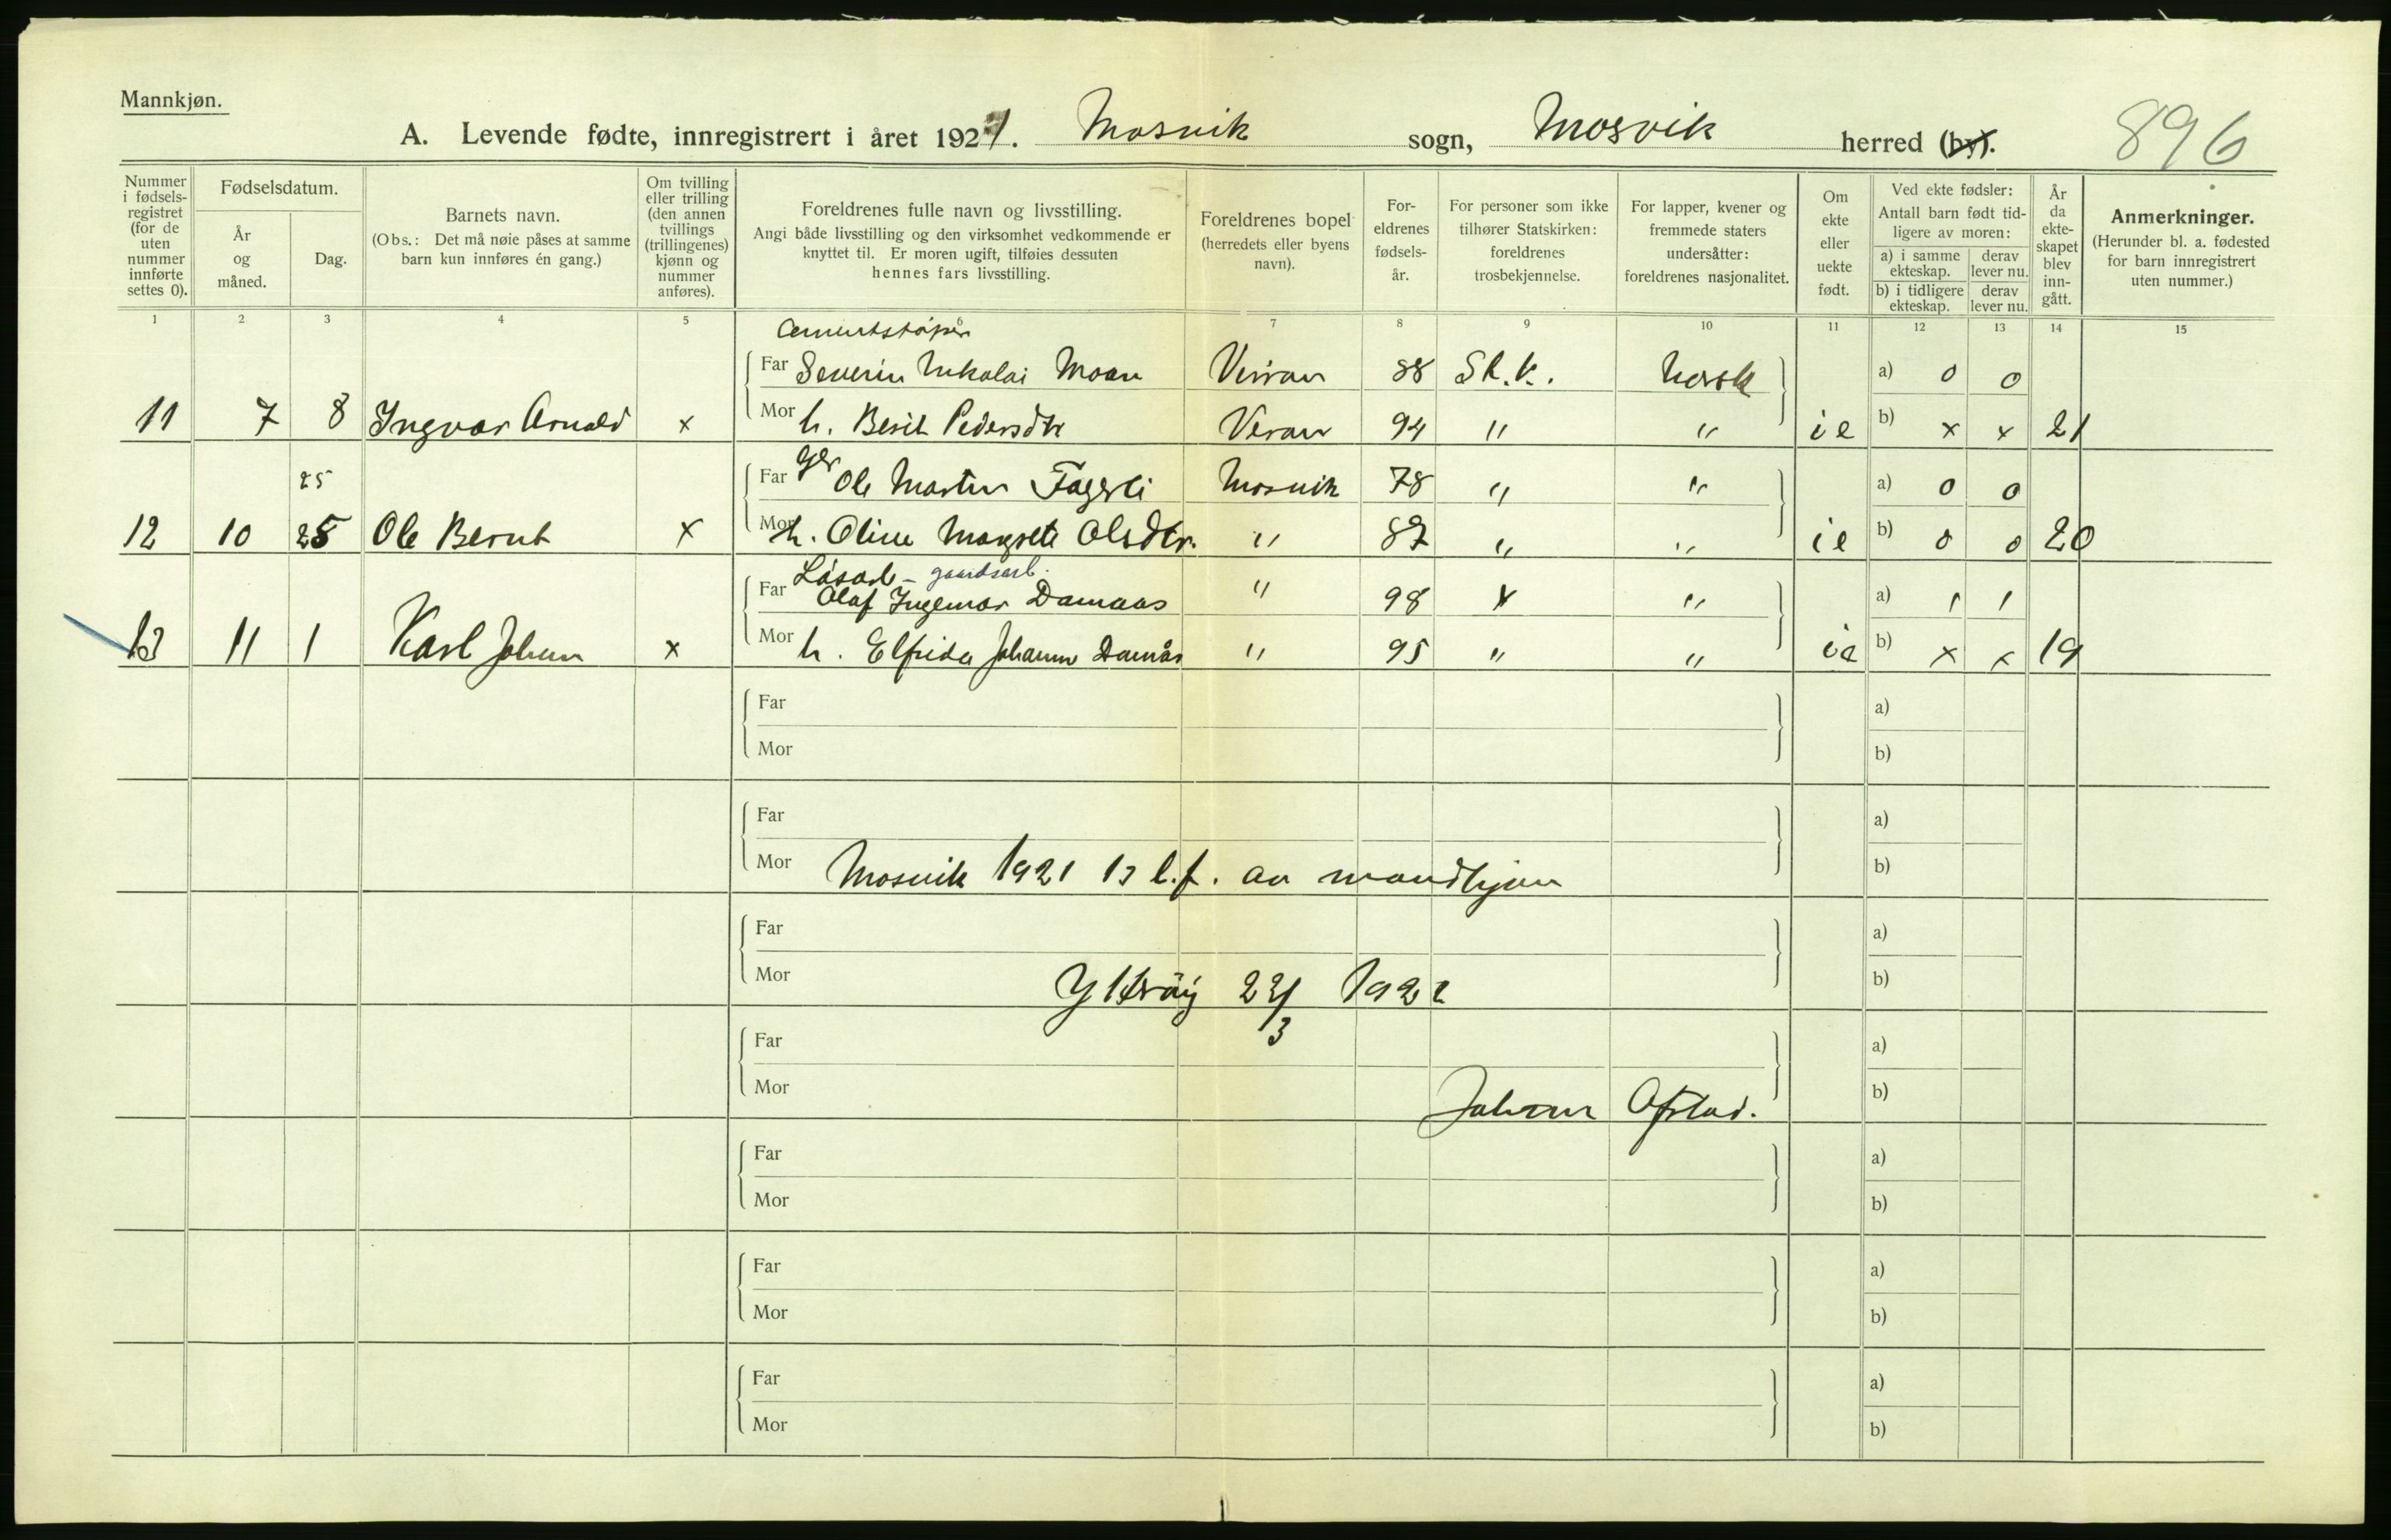 Mannkjøn.
A. Levende fødte, innregistrert i året 1921. Mosvik sogn, Mosvik herred (by). 896
Nummer i fødselsregistret (for de uten nummer innførte settes 0).
Fødselsdatum.
År og måned.
Dag.
Barnets navn.
(Obs.: Det må nøie påses at samme barn kun innføres én gang.)
Om tvilling eller trilling (den annen tvillings (trillingenes) kjønn og nummer anføres).
Foreldrenes fulle navn og livsstilling.
Angi både livsstilling og den virksomhet vedkommende er knyttet til. Er moren ugift, tilføies dessuten hennes fars livsstilling.
Foreldrenes bopel (herredets eller byens navn).
Foreldrenes fødselsår.
For personer som ikke tilhører Statskirken: foreldrenes trosbekjennelse.
For lapper, kvener og fremmede staters undersåtter: foreldrenes nasjonalitet.
Om ekte eller uekte født.
Ved ekte fødsler:
Antall barn født tidligere av moren:
a) i samme ekteskap. derav lever nu.
b) i tidligere ekteskap. derav lever nu.
År da ekteskapet blev inngått.
Anmerkninger.
(Herunder bl. a. fødested for barn innregistrert uten nummer.)
1 2 3 4 5 6 7 8 9 10 11 12 13 14 15
Cementstøper
Far Severin Nikolai Moan Verran 88 St.k. norsk a) 0 0
11 7 8 Ingvar Arnold x Mor h. Berit Pedersdtr Veran 94 " " ie b) x x 21
25
Far Ger Ole Martin Fagerli Mosvik 78 " " a) 0 0
12 10 25 Ole Bernt x Mor h. Oline Margrete Olsdtr. " 87 " " ie b) 0 0 20
Løsarb – gaardsarb.
Far Olaf Ingemar Damaas " 98 x " a) 1 1
13 11 1 Karl Johan x Mor h. Elfrida Johanne Damås " 95 " " ie b) x x 19
Far a)
Mor b)
Far a)
Mor Mosvik 1921 13 l.f. av mandkjøn b)
Far a)
Mor Ytterøy 22/3 1922 b)
Far a)
Mor Johan Ofstad. b)
Far a)
Mor b)
Far a)
Mor b)
Far a)
Mor b)